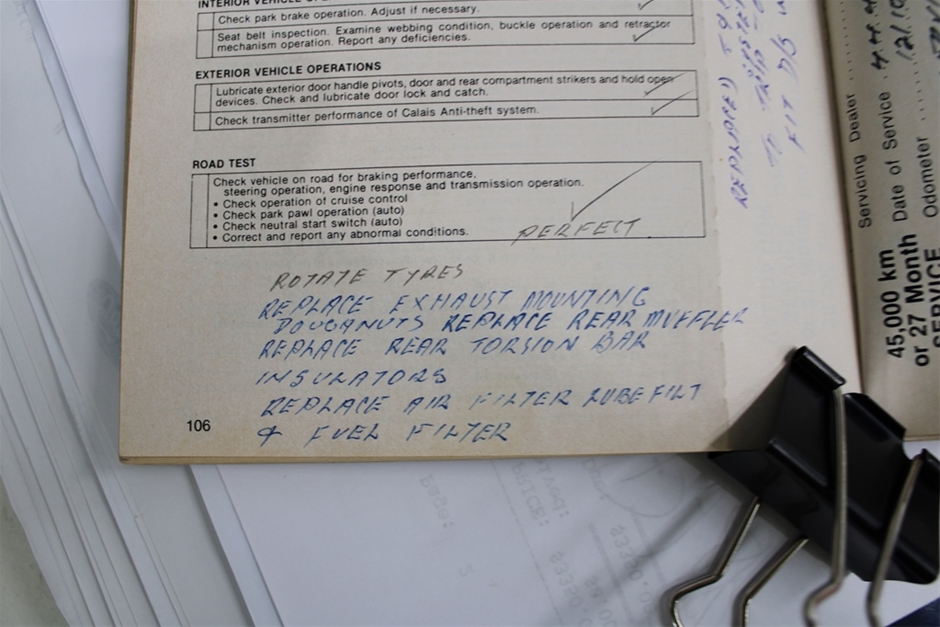 INTERIOR VEHICLE
Check park brake operation. Adjust if necessary.
Seat belt inspection. Examine webbing condition, buckle operation and retractor
mechanism operation. Report any deficiencies.
EXTERIOR VEHICLE OPERATIONS
Lubricate exterior door handle pivots, door and rear compartment strikers and hold open
devices. Check and lubricate door lock and catch.
Check transmitter performance of Calais Anti-theft system.
ROAD TEST
Check vehicle on road for braking performance,
steering operation, engine response and transmission operation.
• Check operation of cruise control
• Check park pawl operation (auto)
• Check neutral start switch (auto)
• Correct and report any abnormal conditions.
PERFECT
ROTATE TYRES
REPLACE EXHAUST MOUNTING
DOUGANUTS REPLACE REAR MUFFLER
REPLACE REAR TORSION BAR
INSULATORS
REPLACE AIR FILTER LUBE FILT
& FUEL FILTER
106
KIT D/S
Servicing Dealer
Date of Service
Odometer
45,000 km
or 27 Month
SERVICE